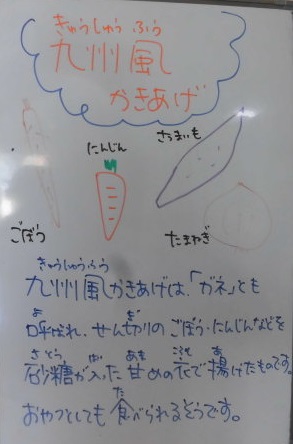 きゅうしゅう ふう
九州風
かきあげ
にんじん
さつまいも
ごぼう
たまねぎ
きゅうしゅうふう
九州風かきあげは、「ガネ」とも
よ ぎ
呼ばれ、せん切りのごぼう・にんじんなどを
さとう はい あま ころも あ
砂糖が入った甘めの衣で揚げたものです。
た
おやつとしても食べられるそうです。